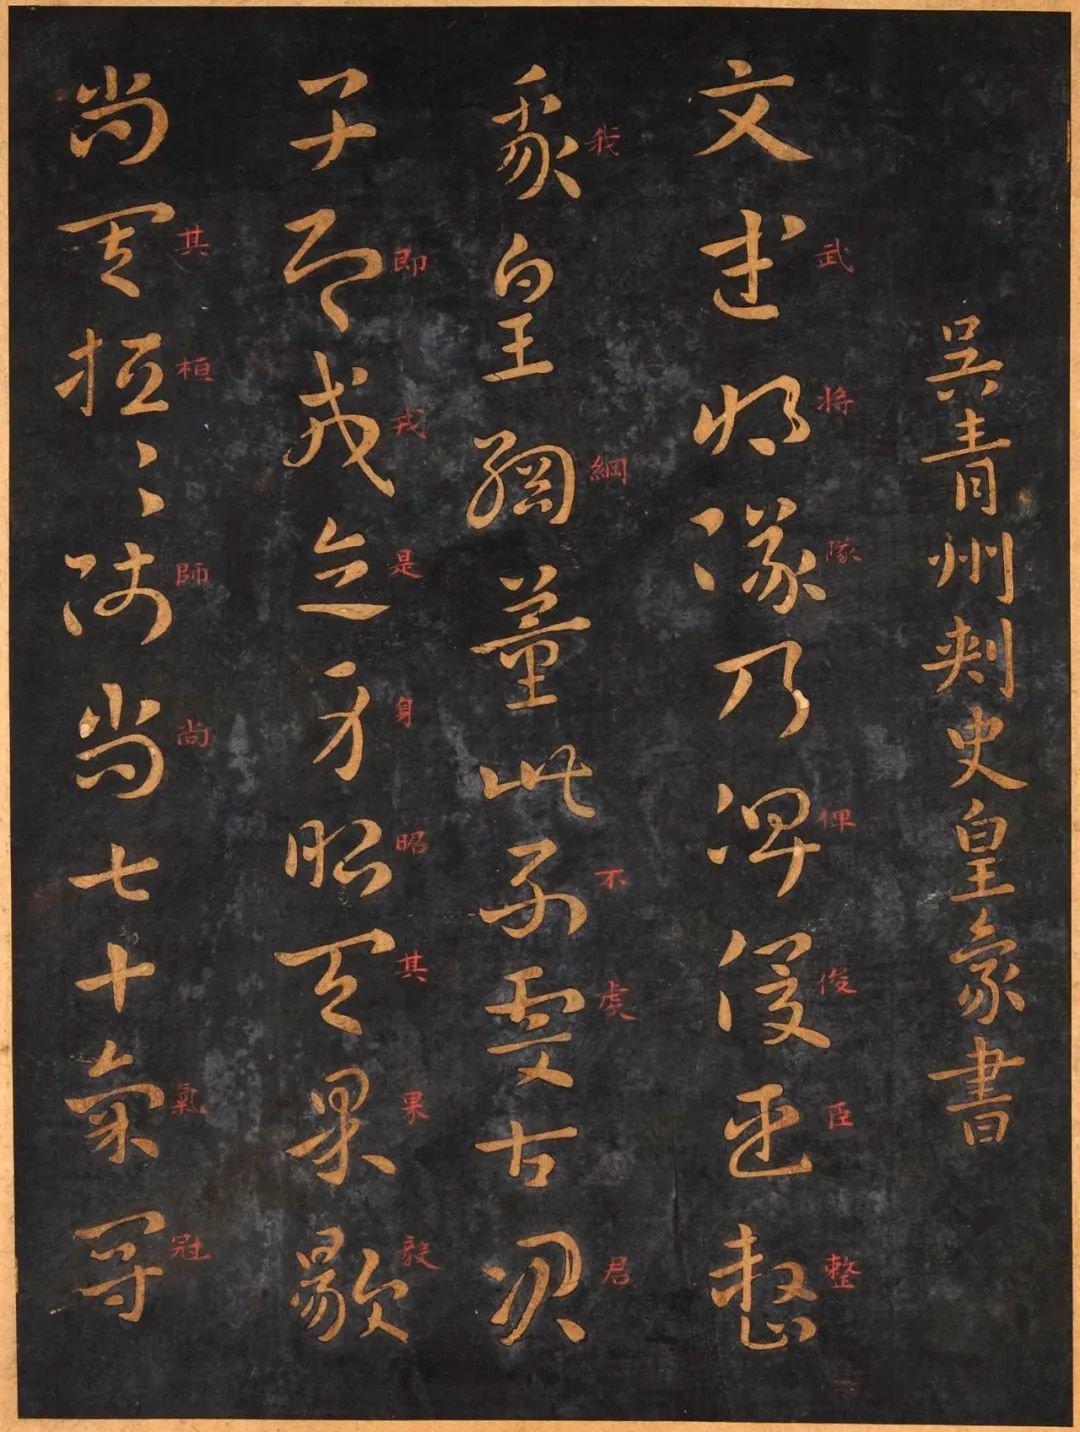 吳青州刺史皇象書
文武將隊乃俾俊臣整
武将隊俾俊臣整
我皇綱董此不虔古君
我綱不虔君
子即戎是身昭其果毅
即戎是身昭其果毅
尚其桓〻師尚七十氣冠
其桓師尚氣冠